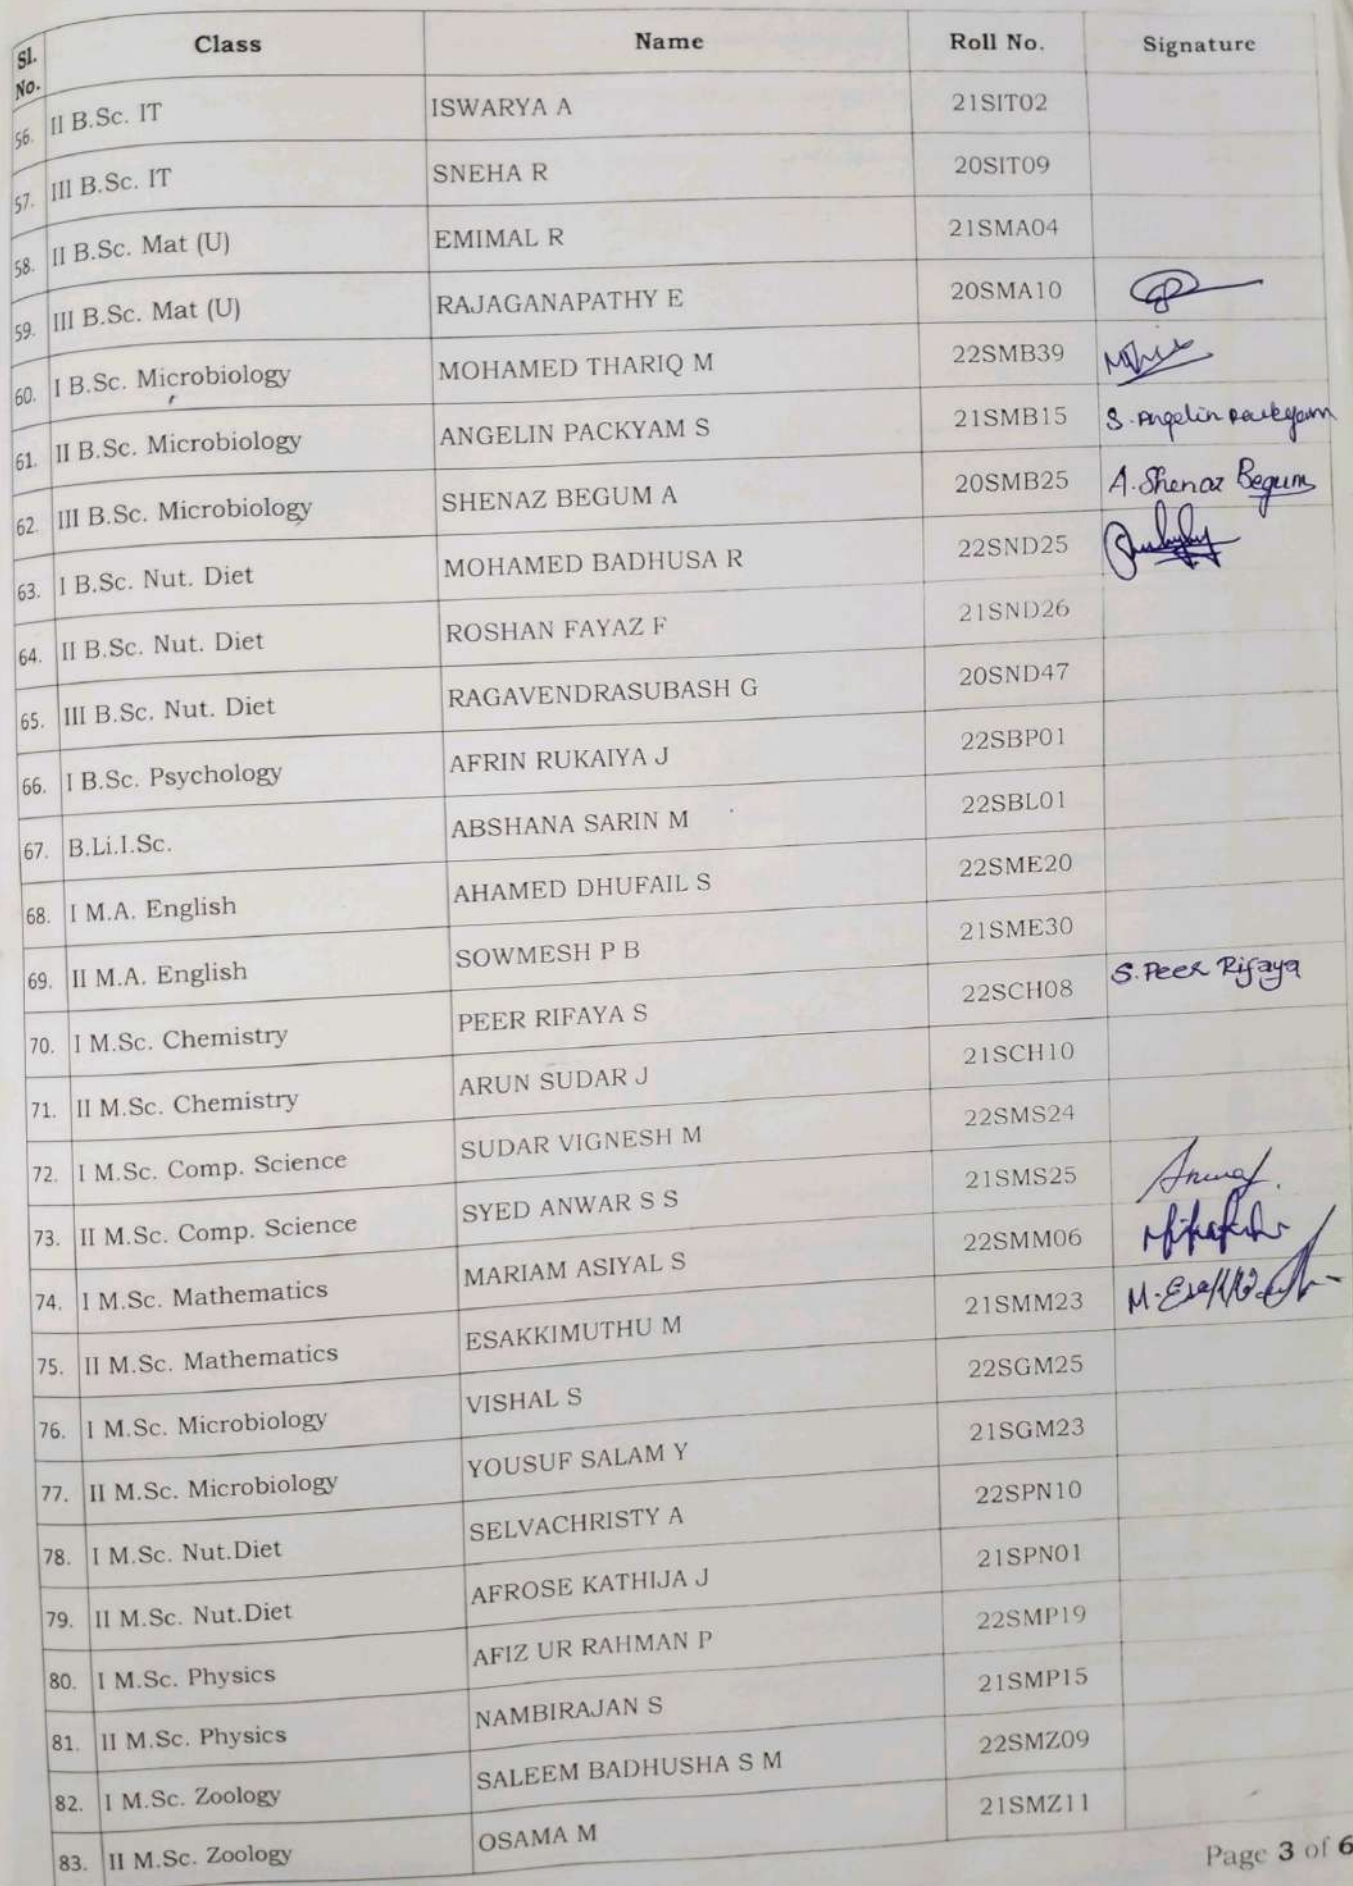 Sl. No. Class Name Roll No. Signature
56. II B.Sc. IT ISWARYA A 21SIT02
57. III B.Sc. IT SNEHA R 20SIT09
58. II B.Sc. Mat (U) EMIMAL R 21SMA04
59. III B.Sc. Mat (U) RAJAGANAPATHY E 20SMA10
60. I B.Sc. Microbiology MOHAMED THARIQ M 22SMB39
61. II B.Sc. Microbiology ANGELIN PACKYAM S 21SMB15 S. Angelin Packyam
62. III B.Sc. Microbiology SHENAZ BEGUM A 20SMB25 A. Shenaz Begum
63. I B.Sc. Nut. Diet MOHAMED BADHUSA R 22SND25
64. II B.Sc. Nut. Diet ROSHAN FAYAZ F 21SND26
65. III B.Sc. Nut. Diet RAGAVENDRASUBASH G 20SND47
66. I B.Sc. Psychology AFRIN RUKAIYA J 22SBP01
67. B.Li.I.Sc. ABSHANA SARIN M 22SBL01
68. I M.A. English AHAMED DHUFAIL S 22SME20
69. II M.A. English SOWMESH P B 21SME30
70. I M.Sc. Chemistry PEER RIFAYA S 22SCH08 S. Peer Rifaya
71. II M.Sc. Chemistry ARUN SUDAR J 21SCH10
72. I M.Sc. Comp. Science SUDAR VIGNESH M 22SMS24
73. II M.Sc. Comp. Science SYED ANWAR S S 21SMS25
74. I M.Sc. Mathematics MARIAM ASIYAL S 22SMM06
75. II M.Sc. Mathematics ESAKKIMUTHU M 21SMM23
76. I M.Sc. Microbiology VISHAL S 22SGM25
77. II M.Sc. Microbiology YOUSUF SALAM Y 21SGM23
78. I M.Sc. Nut.Diet SELVACHRISTY A 22SPN10
79. II M.Sc. Nut.Diet AFROSE KATHIJA J 21SPN01
80. I M.Sc. Physics AFIZ UR RAHMAN P 22SMP19
81. II M.Sc. Physics NAMBIRAJAN S 21SMP15
82. I M.Sc. Zoology SALEEM BADHUSHA S M 22SMZ09
83. II M.Sc. Zoology OSAMA M 21SMZ11
Page 3 of 6